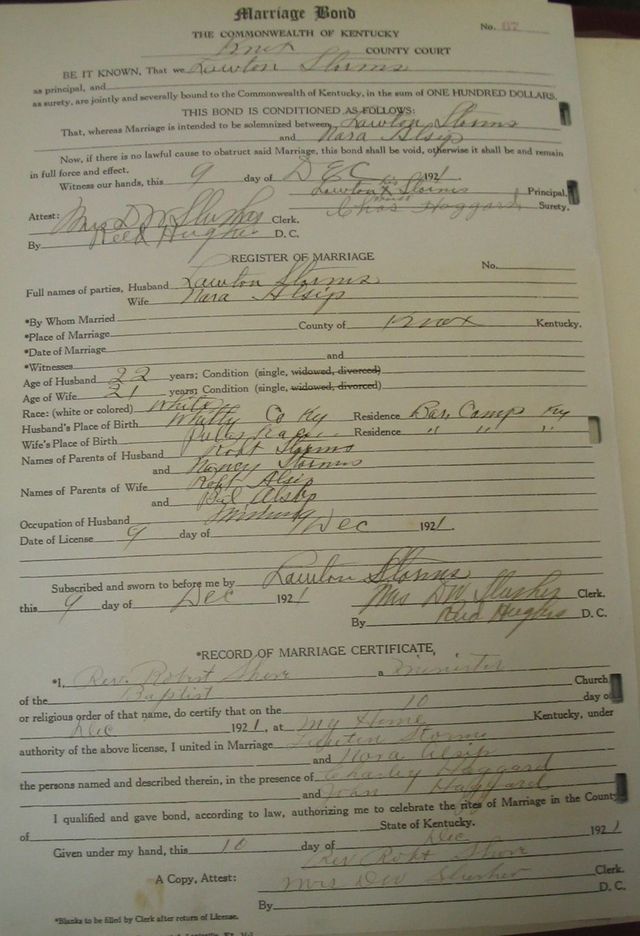 Marriage Bond
No. 67
THE COMMONWEALTH OF KENTUCKY
Knox COUNTY COURT
BE IT KNOWN, That we Lawton Storms
as principal, and
as surety, are jointly and severally bound to the Commonwealth of Kentucky, in the sum of ONE HUNDRED DOLLARS.
THIS BOND IS CONDITIONED AS FOLLOWS:
That, whereas Marriage is intended to be solemnized between Lawton Storms
and Nara Alsip
Now, if there is no lawful cause to obstruct said Marriage, this bond shall be void, otherwise it shall be and remain
in full force and effect.
Witness our hands, this 9 day of DEC 1921
Lawton x Storms Principal,
Chas Haggard Surety.
Attest: Mrs D W Slusher Clerk.
By Reed Hughes D. C.
REGISTER OF MARRIAGE
No.
Full names of parties, Husband Lawton Storms
Wife Nara Alsip
*By Whom Married
*Place of Marriage County of Knox Kentucky.
*Date of Marriage
*Witnesses and
Age of Husband 22 years; Condition (single, widowed, divorced)
Age of Wife 21 years; Condition (single, widowed, divorced)
Race: (white or colored) White
Husband's Place of Birth Whitly Co Ky Residence Camp Ky
Wife's Place of Birth Residence " " "
Names of Parents of Husband Robt Storms
and Nancy Storms
Names of Parents of Wife Robt Alsip
and Alsip
Occupation of Husband
Date of License 9 day of Dec 1921
Subscribed and sworn to before me by Lawton Storms
this 9 day of Dec 1921 Mrs DW Slusher Clerk.
By Reed Hughes D. C.
*RECORD OF MARRIAGE CERTIFICATE,
*I, Rev. Robt a minister Church
of the Baptist
or religious order of that name, do certify that on the 10 day of
Dec 1921, at My Home Kentucky, under
authority of the above license, I united in Marriage Storms
and Nora Alsip
the persons named and described therein, in the presence of Charley Haggard
and Haggard
I qualified and gave bond, according to law, authorizing me to celebrate the rites of Marriage in the County
of State of Kentucky.
Given under my hand, this 10 day of Dec 1921
Rev Robt
A Copy, Attest: Mrs DW Slusher Clerk.
By D. C.
*Blanks to be filled by Clerk after return of License.